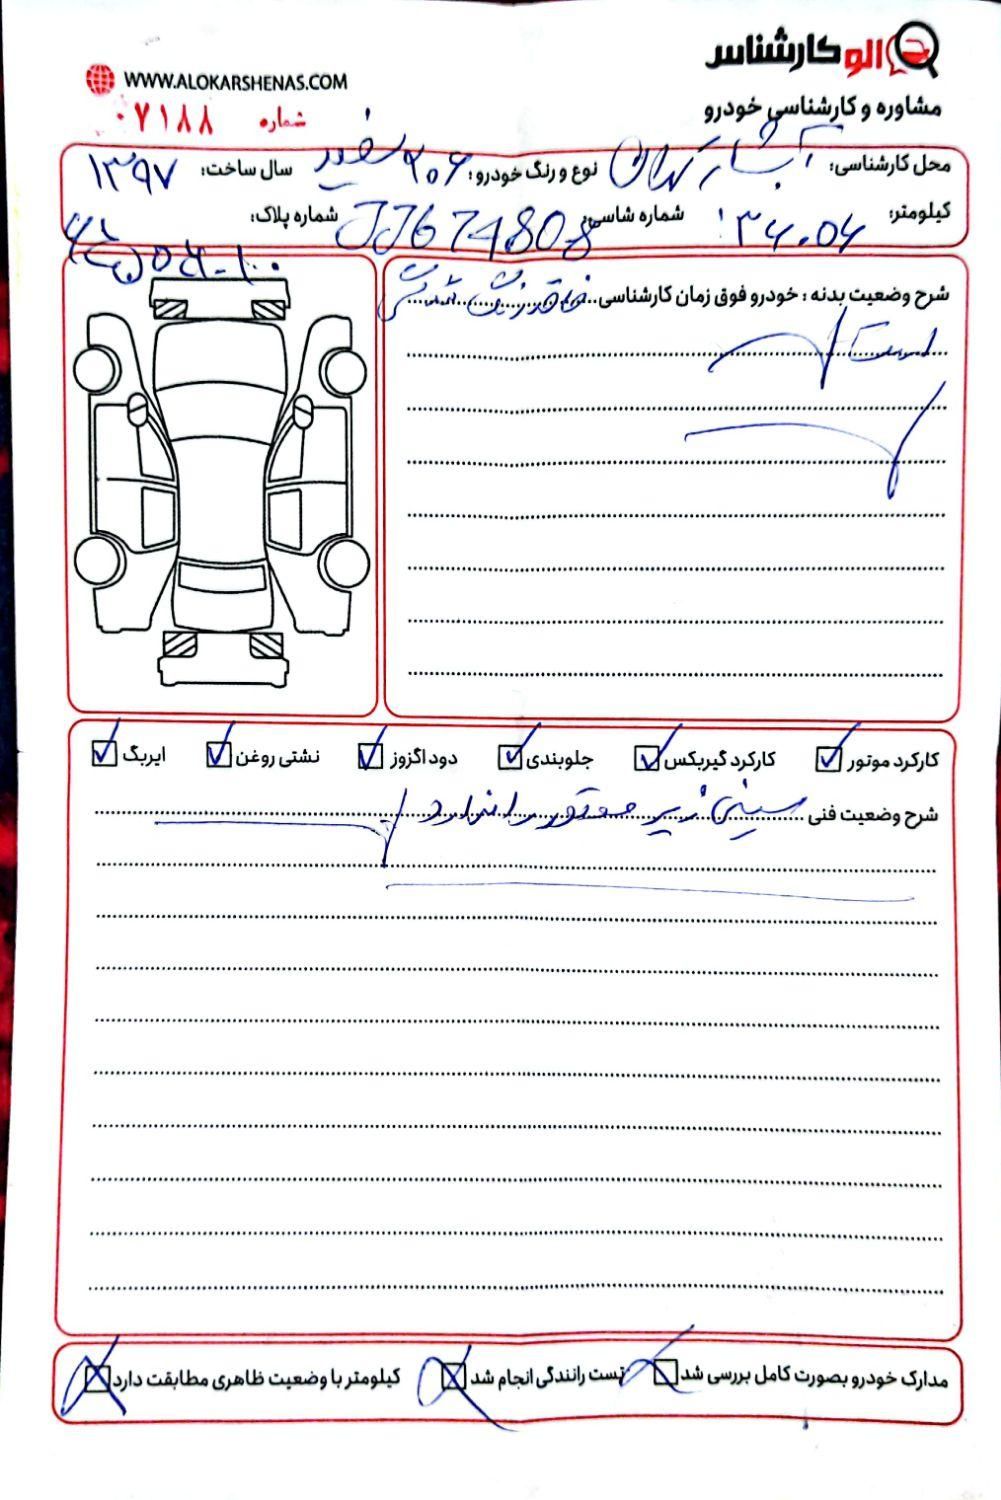 الو کارشناس
مشاوره و کارشناسی خودرو
WWW.ALOKARSHENAS.COM
شماره ۰۷۱۸۸
محل کارشناسی: آبشار تهران نوع و رنگ خودرو: ۲۰۶ سفید سال ساخت: ۱۳۹۷
کیلومتر: ۳۶۰۵۶ شماره شاسی: JJ674808 شماره پلاک:
شرح وضعیت بدنه : خودرو فوق زمان کارشناسی فاقد رنگ شدگی
است
کارکرد موتور کارکرد گیربکس جلوبندی دود اگزوز نشتی روغن ایربگ
شرح وضعیت فنی سینی زیر موتور را ندارد
مدارک خودرو بصورت کامل بررسی شد تست رانندگی انجام شد کیلومتر با وضعیت ظاهری مطابقت دارد